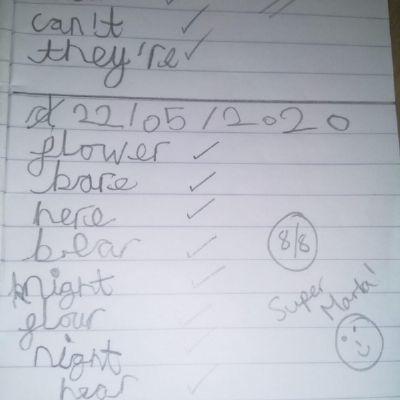 can't
they're
d 22/05/2020
flower
bare
here
bear
8/8
knight
Super Marta!
flour
night
hear